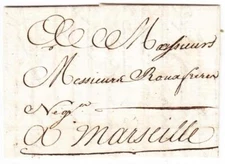 A Messieurs
Messieurs Roux freres
Neg.ts
A Marseille